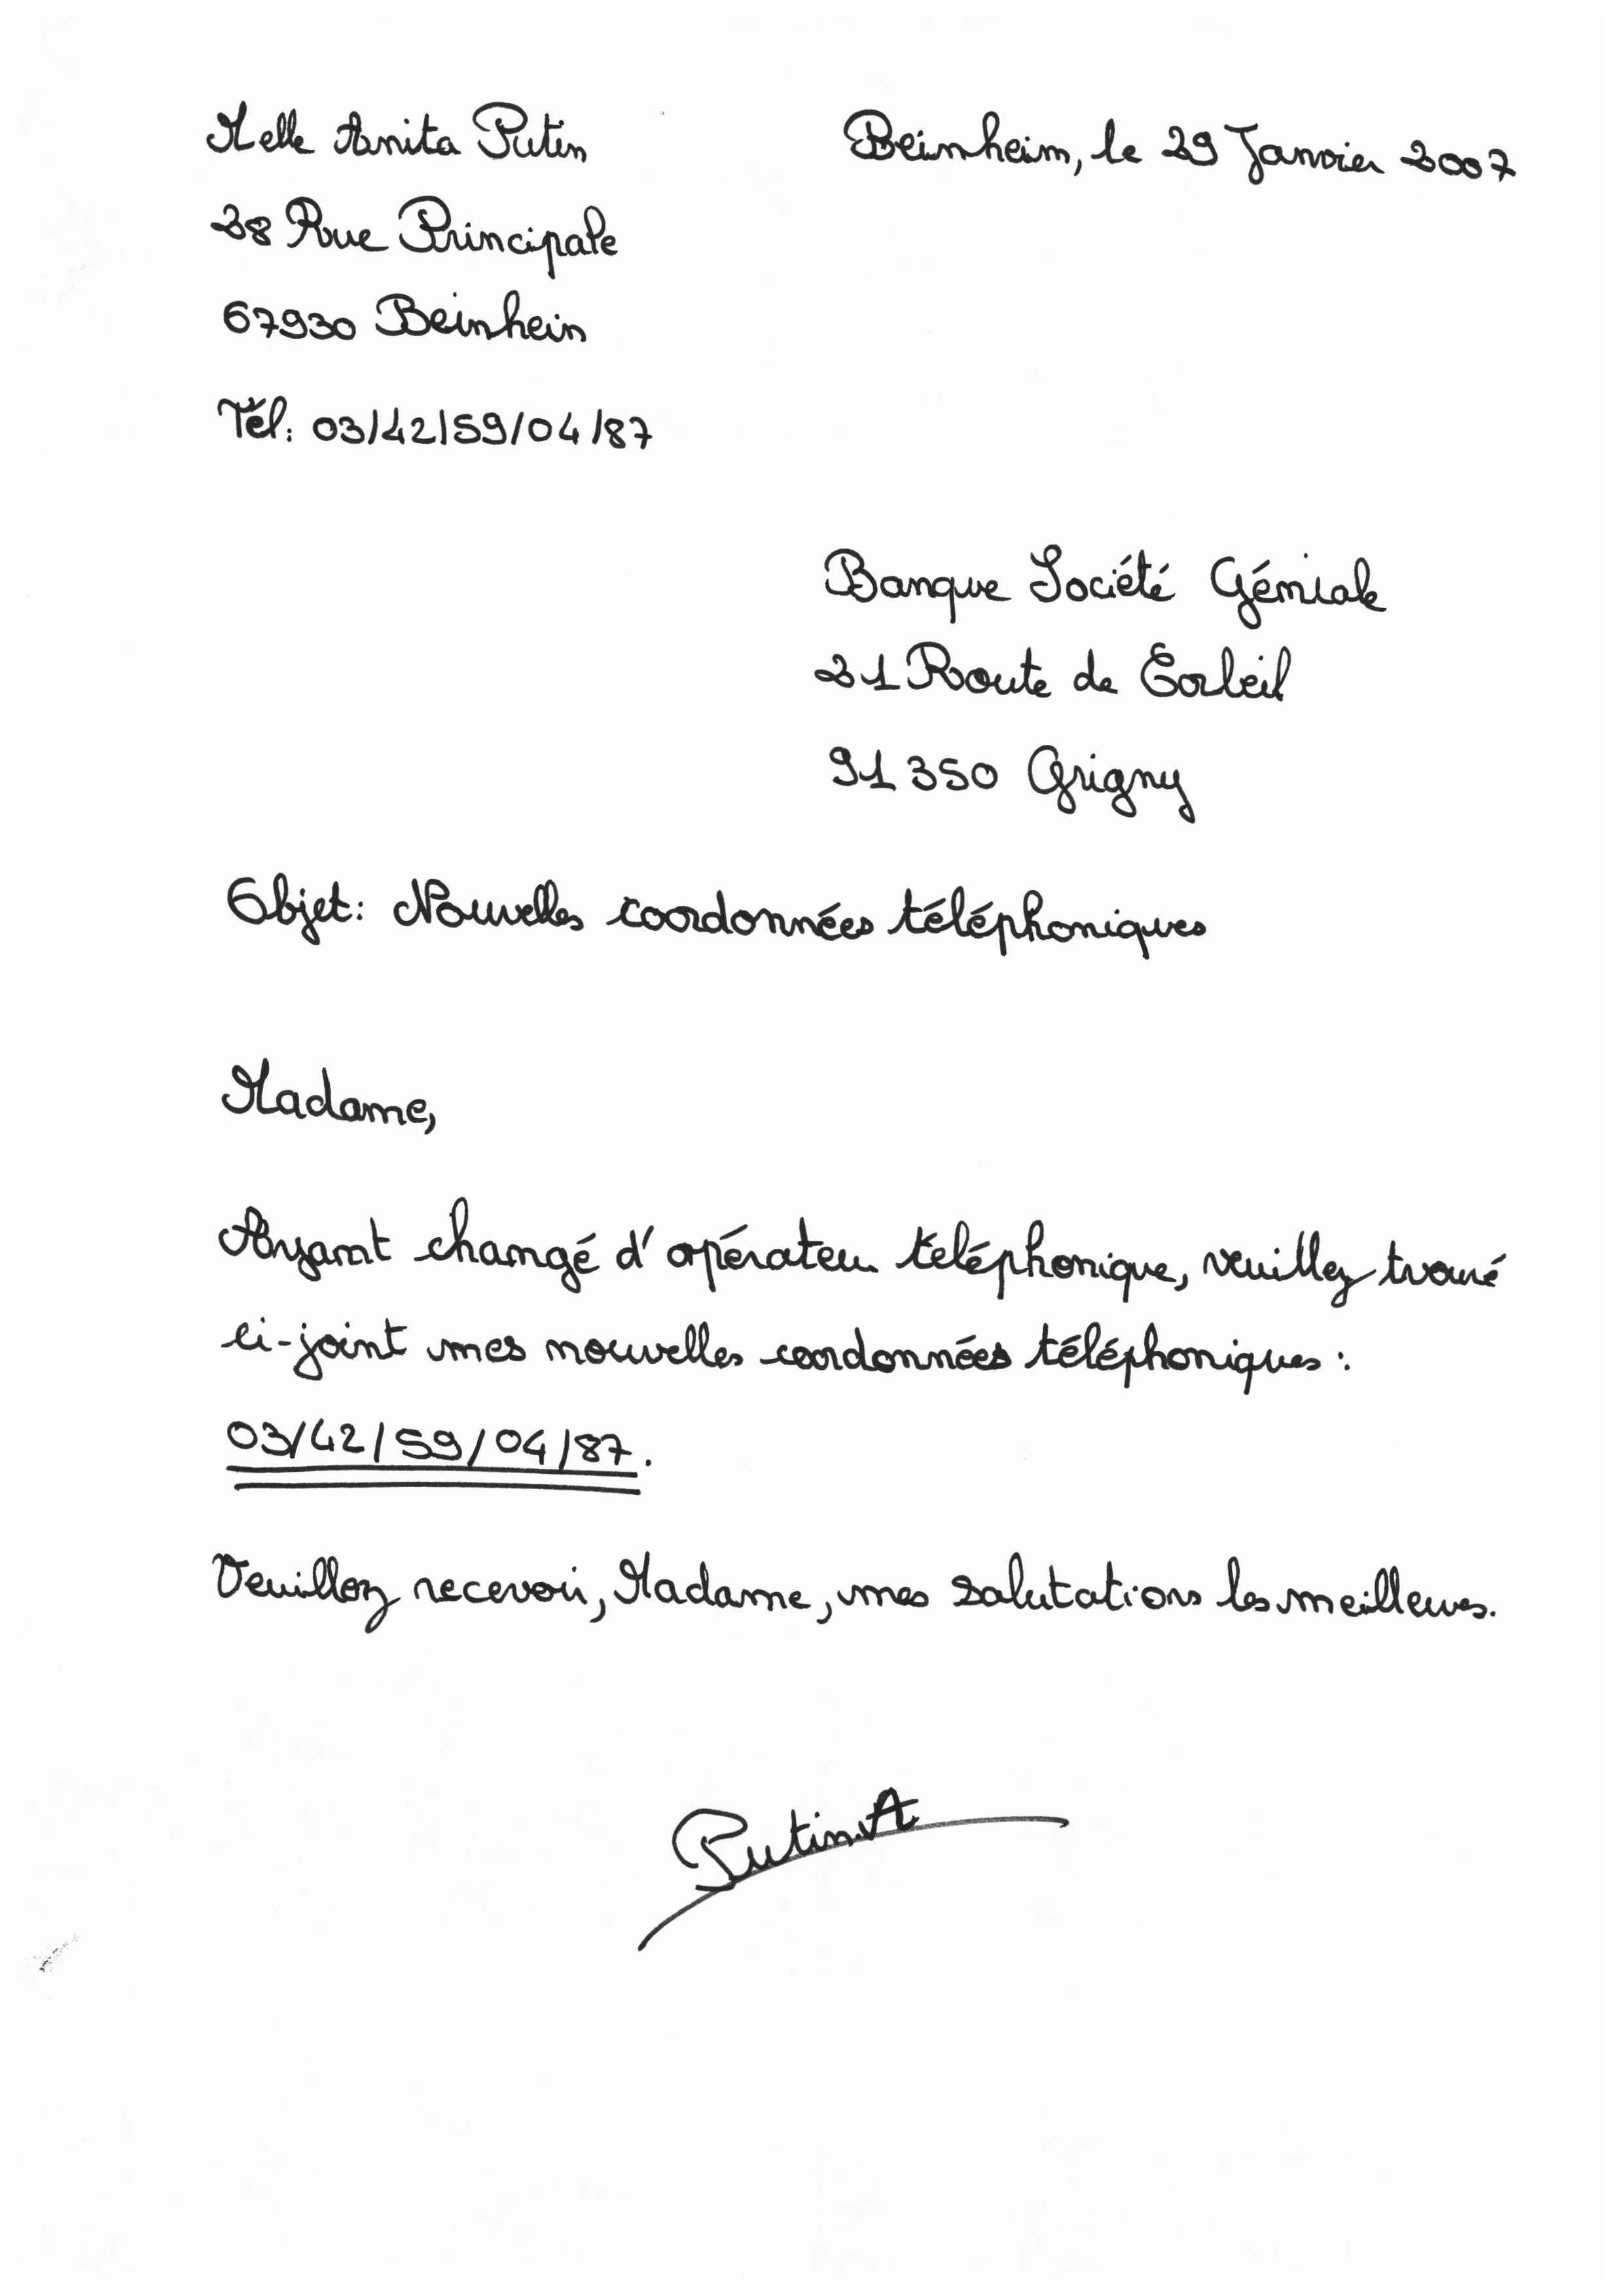 Melle Anita Putin
Beinheim, le 29 Janvier 2007
28 Rue Principale
67930 Beinhein
Tél: 03/42/59/04/87
Banque Société Géniale
21 Route de Corbeil
91350 Grigny
Objet: Nouvelles coordonnées téléphoniques
Madame,
Ayant changé d'opérateur teléphonique, veuillez trouvé
ci-joint mes nouvelles coordonnées téléphoniques :
03/42/59/04/87.
Veuillez recevoir, Madame, mes salutations les meilleures.
Putin.A